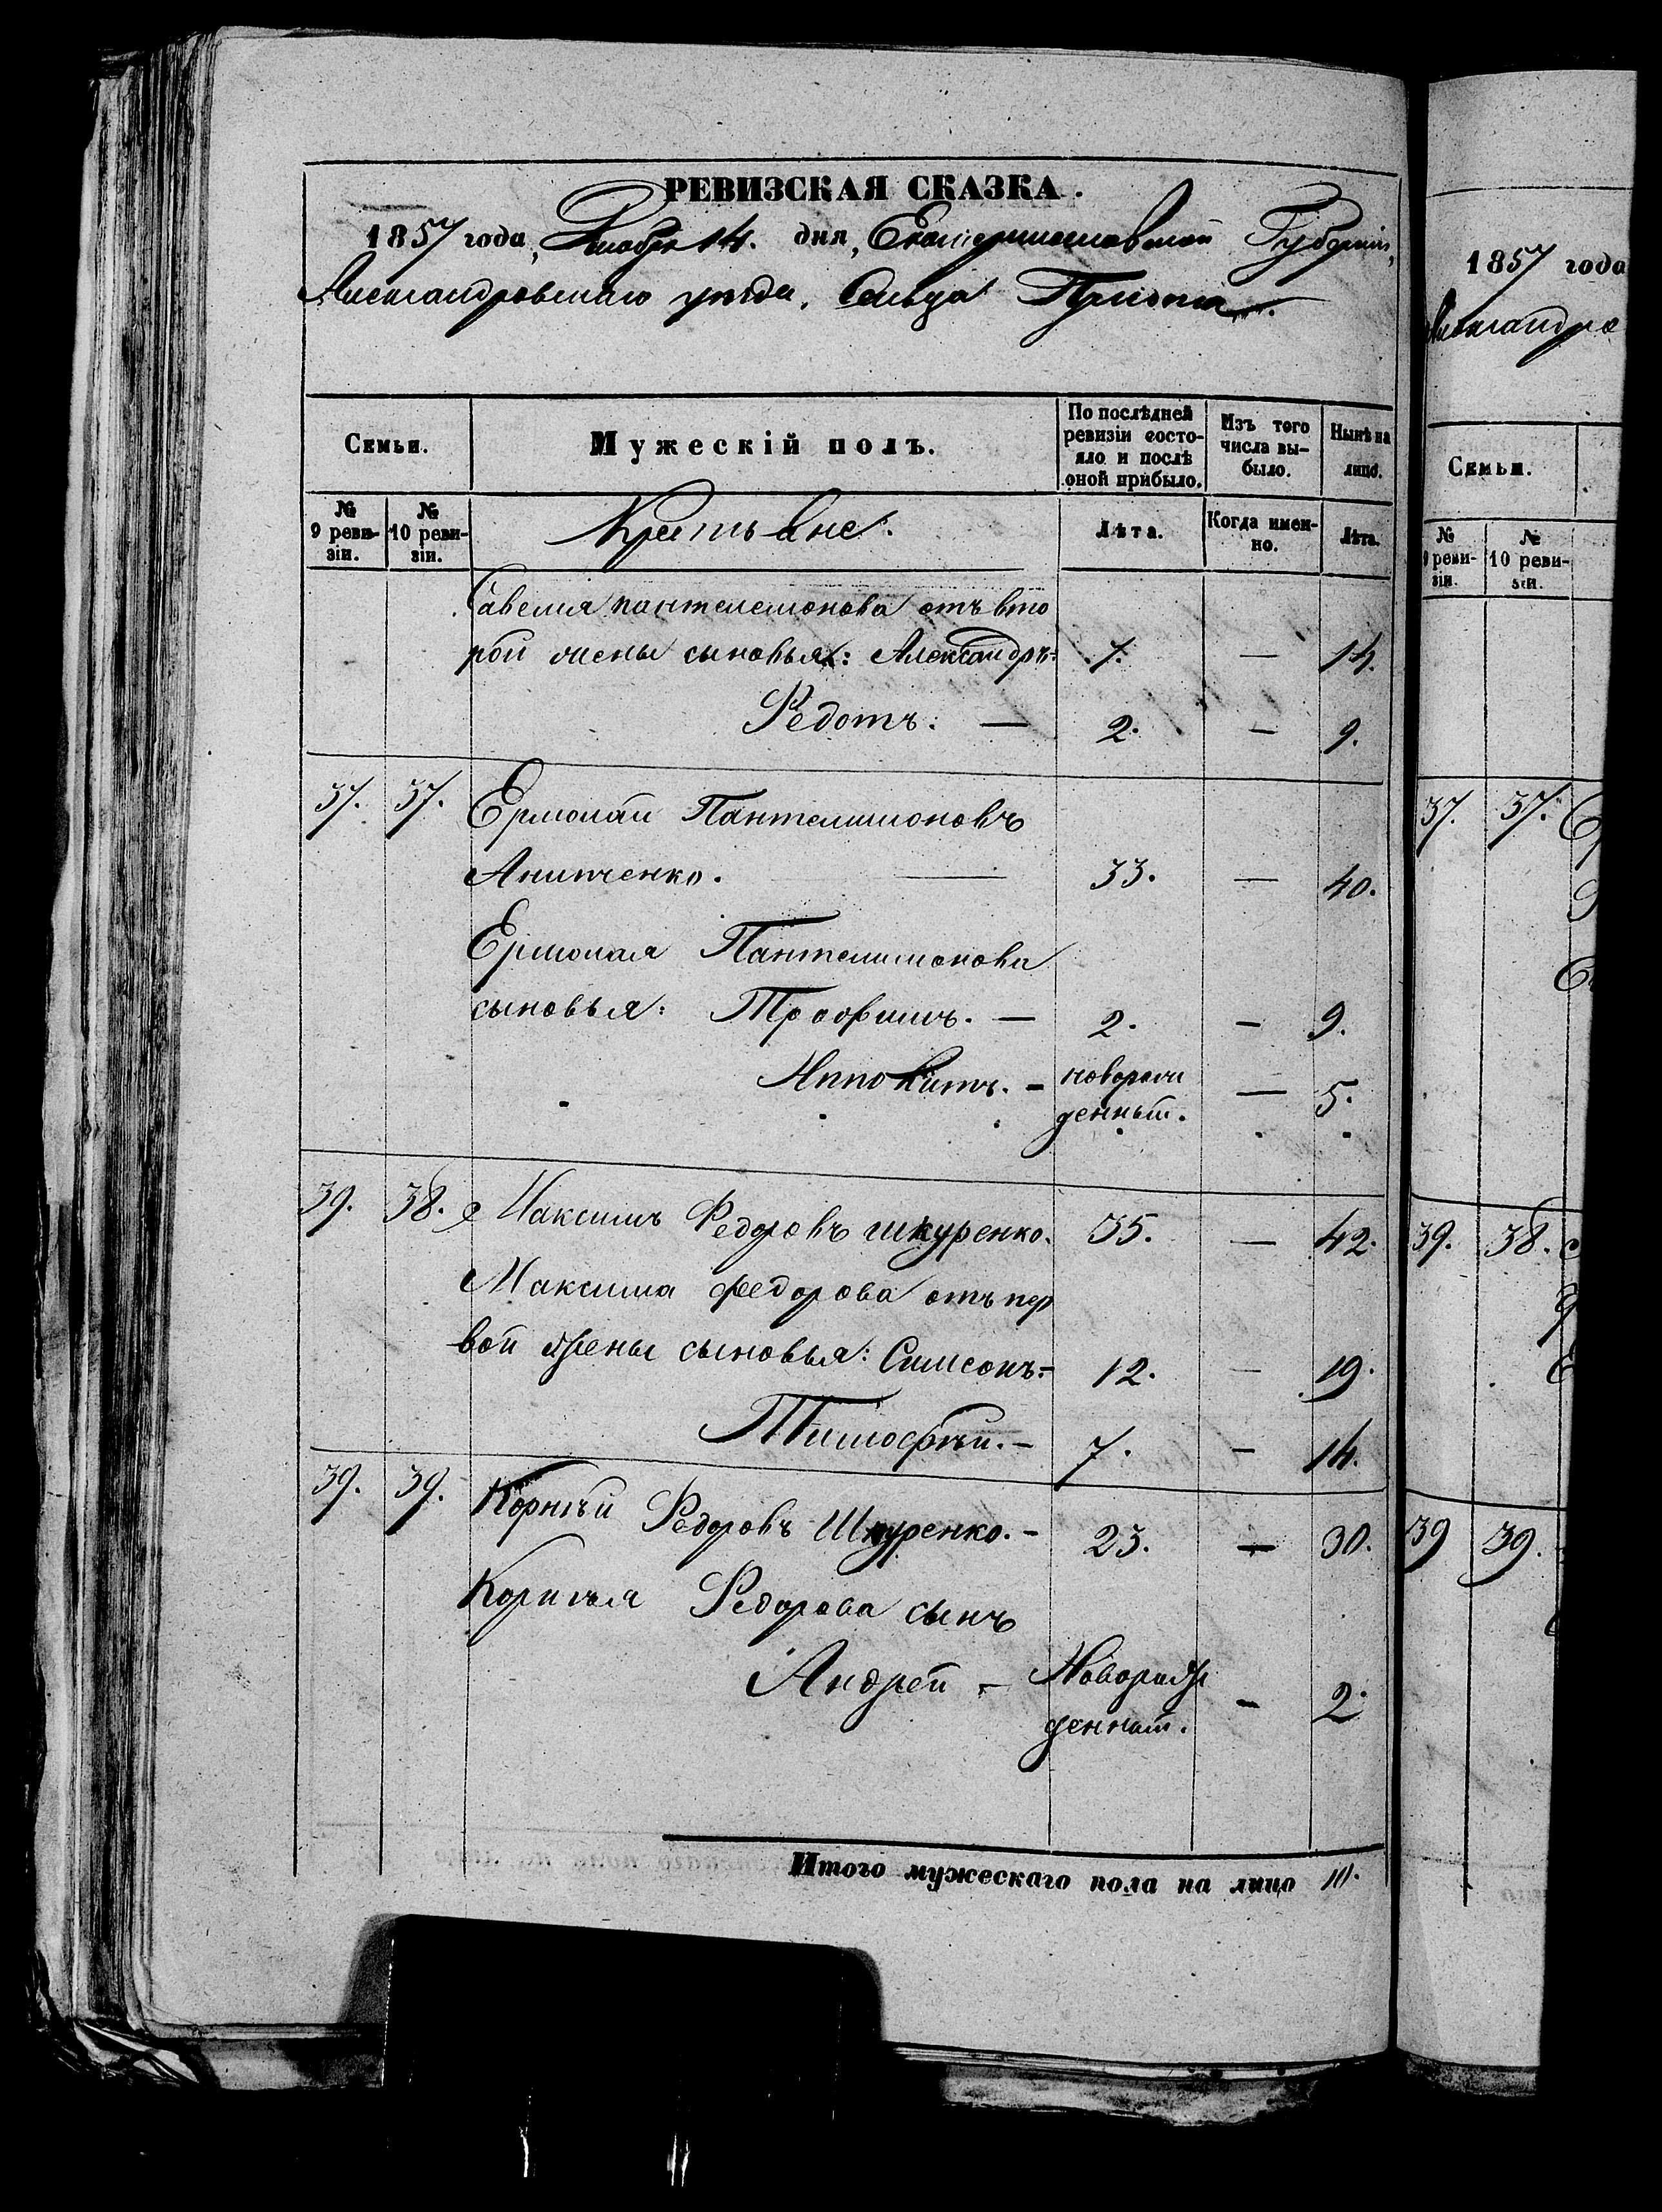 РЕВИЗСКАЯ СКАЗКА.
1857 года, Декабря 14. дня, Екатеринославской Губерніи,
Александровскаго уѣзда, Сельца
Семьи.
Мужескій полъ.
По послѣдней ревизіи состояло и послѣ оной прибыло.
Изъ того числа выбыло.
Нынѣ на лицо.
№ 9 ревизіи.
№ 10 ревизіи.
Крестьяне:
Лѣта.
Когда именно.
Лѣта.
Савелия пантелемонова отъ вто
рой жены сыновья: Александръ= 7. — 14.
Федотъ. — 2. — 9.
37. 37. Ермолай Пантелимоновъ
Анипченко. — 33. — 40.
Ермолая Пантелимонова
сыновья: Трофимъ. — 2. — 9.
Ипполитъ. — новорож
денный. — 5.
39. 38. Максимъ Федоровъ шкуренко. 35. — 42.
Максима Федорова отъ пер
вой жены сыновья: Симеонъ= 12. — 19.
Тимофѣй. — 7. — 14.
39. 39. Корнѣй Федоровъ Шкуренко. — 23. — 30.
Корнѣя Федорова сынъ
Андрей — Новорож
денный. — 2.
Итого мужескаго пола на лицо 10.
1857 года
Александро
Семьи.
№ 9 ревизіи.
№ 10 ревизіи.
37. 37.
39. 38.
39 39.